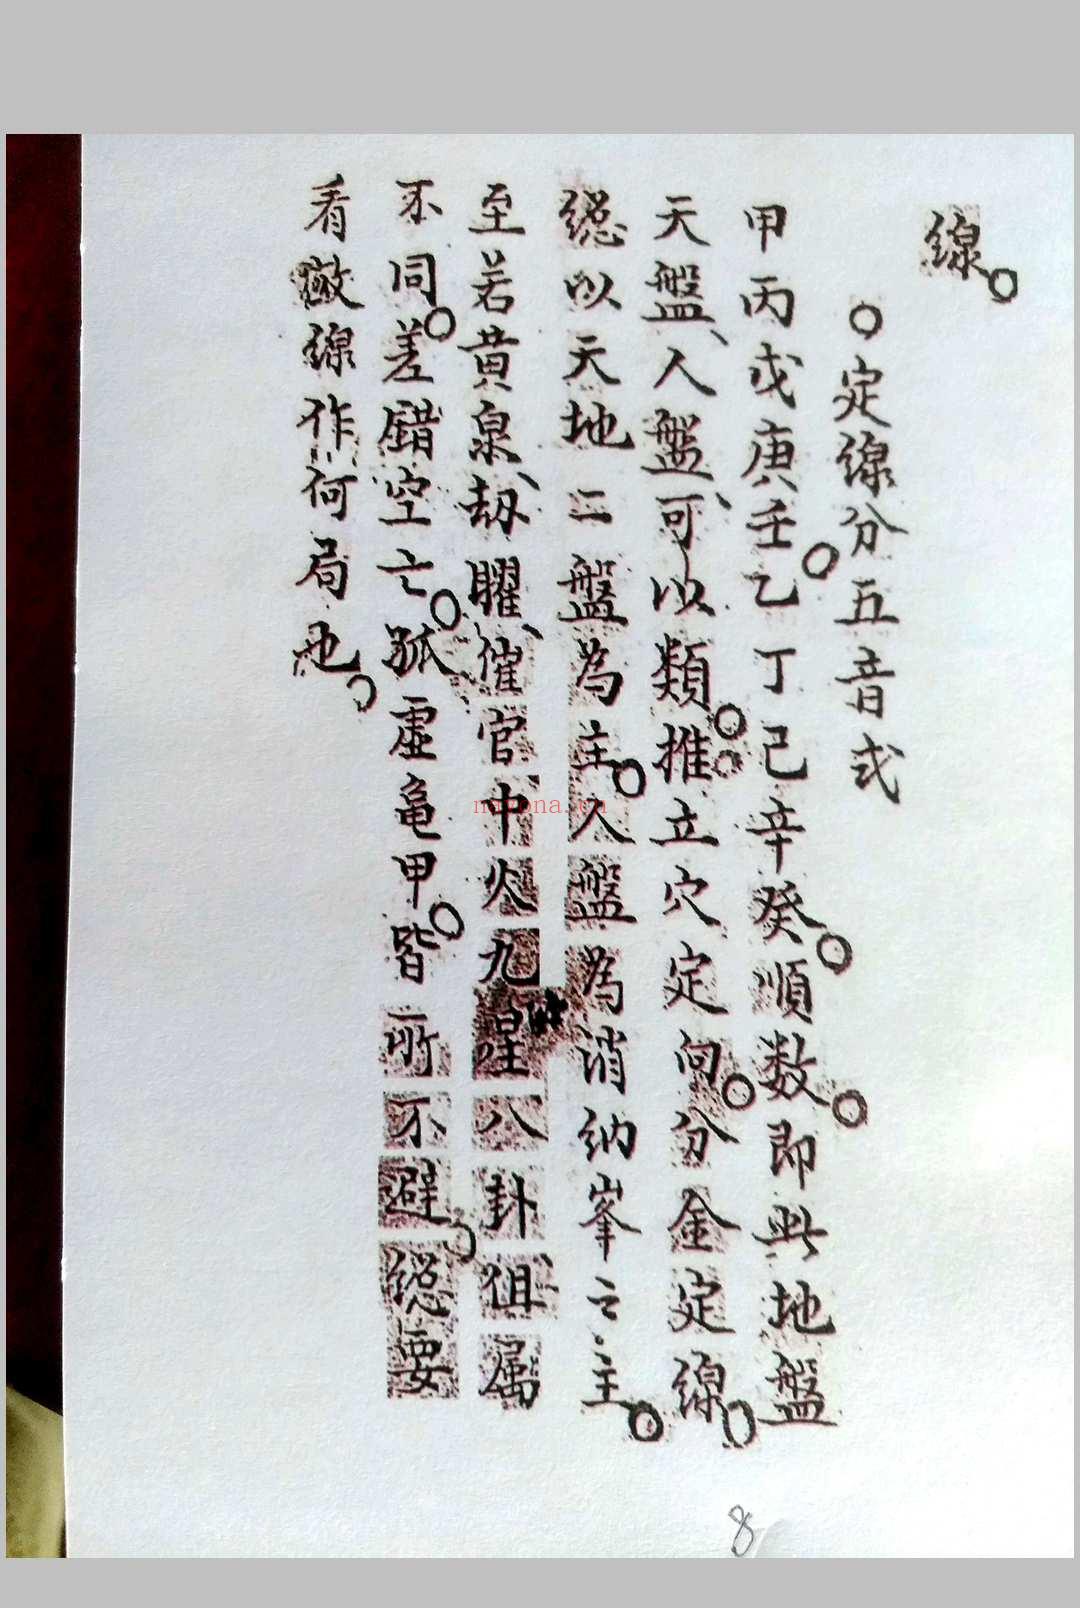 線。
○定線分五音式
甲丙戊庚壬。乙丁己辛癸。順数。即此地盤
天盤、人盤、可以類推。立穴定向。分金定線。
總以天地二盤為主。人盤為消納峯之主。
至若黄泉、劫曜、催官中火九星八卦俱属
不同。差錯空亡。孤虛龜甲。皆所不避。總要
看線作何局也。
8
nayona.cn